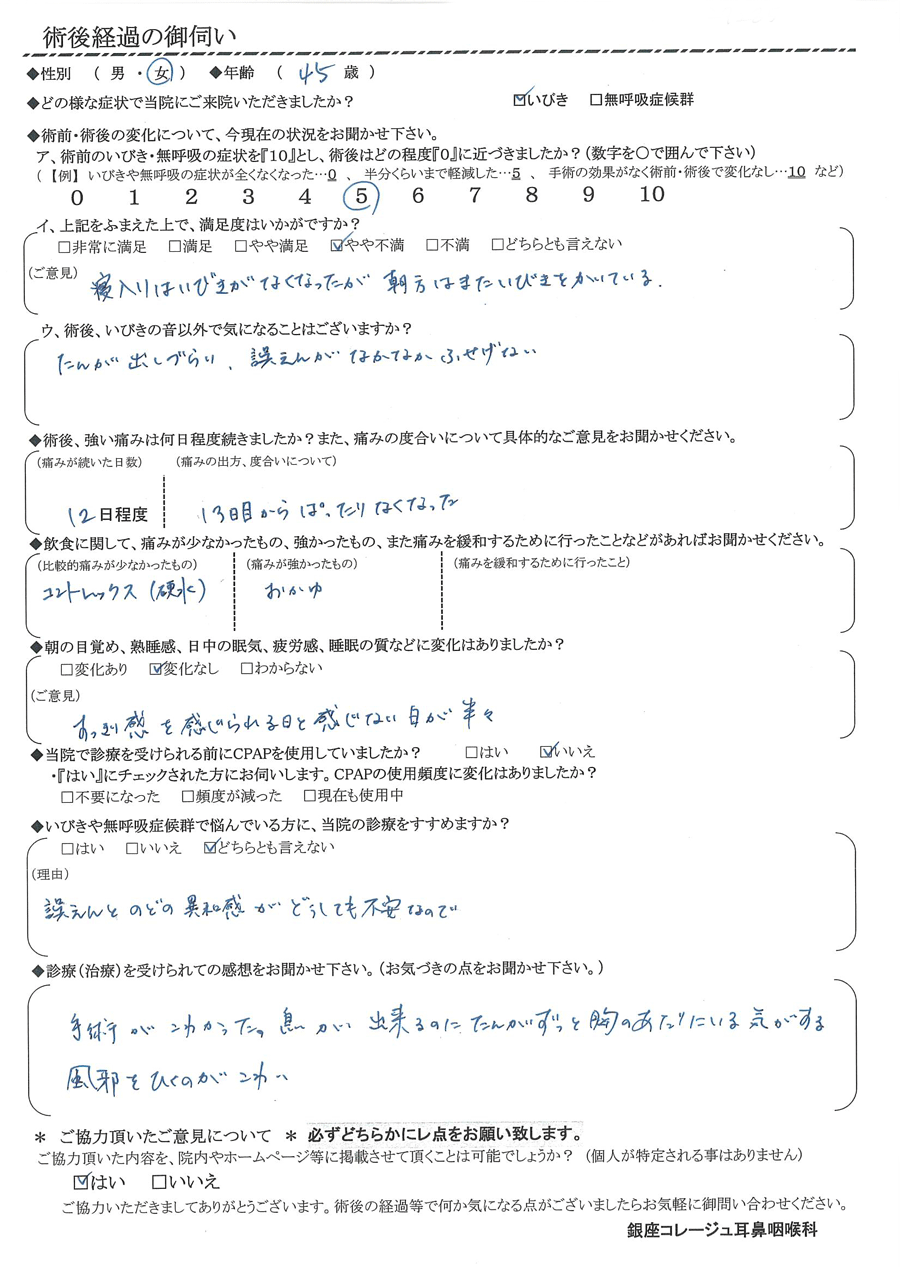 術後経過の御伺い
◆性別 （ 男 ・ 女 ） ◆年齢 （ 45 歳 ）
◆どの様な症状で当院にご来院いただきましたか？ ☑いびき □無呼吸症候群
◆術前・術後の変化について、今現在の状況をお聞かせ下さい。
ア、術前のいびき・無呼吸の症状を『10』とし、術後はどの程度『0』に近づきましたか？（数字を〇で囲んで下さい）
（【例】 いびきや無呼吸の症状が全くなくなった…0 、 半分くらいまで軽減した…5 、 手術の効果がなく術前・術後で変化なし…10 など）
0 1 2 3 4 5 6 7 8 9 10
イ、上記をふまえた上で、満足度はいかがですか？
□非常に満足 □満足 □やや満足 ☑やや不満 □不満 □どちらとも言えない
（ご意見）
寝入りはいびきがなくなったが 朝方はまたいびきをかいている.
ウ、術後、いびきの音以外で気になることはございますか？
たんが出しづらい、誤えんがなかなかふせげない
◆術後、強い痛みは何日程度続きましたか？また、痛みの度合いについて具体的なご意見をお聞かせください。
（痛みが続いた日数） （痛みの出方、度合いについて）
12日程度 13日目からぱったりなくなった
◆飲食に関して、痛みが少なかったもの、強かったもの、また痛みを緩和するために行ったことなどがあればお聞かせください。
（比較的痛みが少なかったもの） （痛みが強かったもの） （痛みを緩和するために行ったこと）
コントレックス（硬水） おかゆ
◆朝の目覚め、熟睡感、日中の眠気、疲労感、睡眠の質などに変化はありましたか？
□変化あり ☑変化なし □わからない
（ご意見）
すっきり感を感じられる日と感じない日が半々
◆当院で診療を受けられる前にCPAPを使用していましたか？ □はい ☑いいえ
・『はい』にチェックされた方にお伺いします。CPAPの使用頻度に変化はありましたか？
□不要になった □頻度が減った □現在も使用中
◆いびきや無呼吸症候群で悩んでいる方に、当院の診療をすすめますか？
□はい □いいえ ☑どちらとも言えない
（理由）
誤えんとのどの異和感がどうしても不安なので
◆診療（治療）を受けられての感想をお聞かせ下さい。（お気づきの点をお聞かせ下さい。）
手術がこわかった。息が出来るのにたんがずっと胸のあたりにいる気がする
風邪をひくのがこわい
＊ ご協力頂いたご意見について ＊ 必ずどちらかにレ点をお願い致します。
ご協力頂いた内容を、院内やホームページ等に掲載させて頂くことは可能でしょうか？ （個人が特定される事はありません）
☑はい □いいえ
ご協力いただきましてありがとうございます。術後の経過等で何か気になる点がございましたらお気軽に御問い合わせください。
銀座コレージュ耳鼻咽喉科